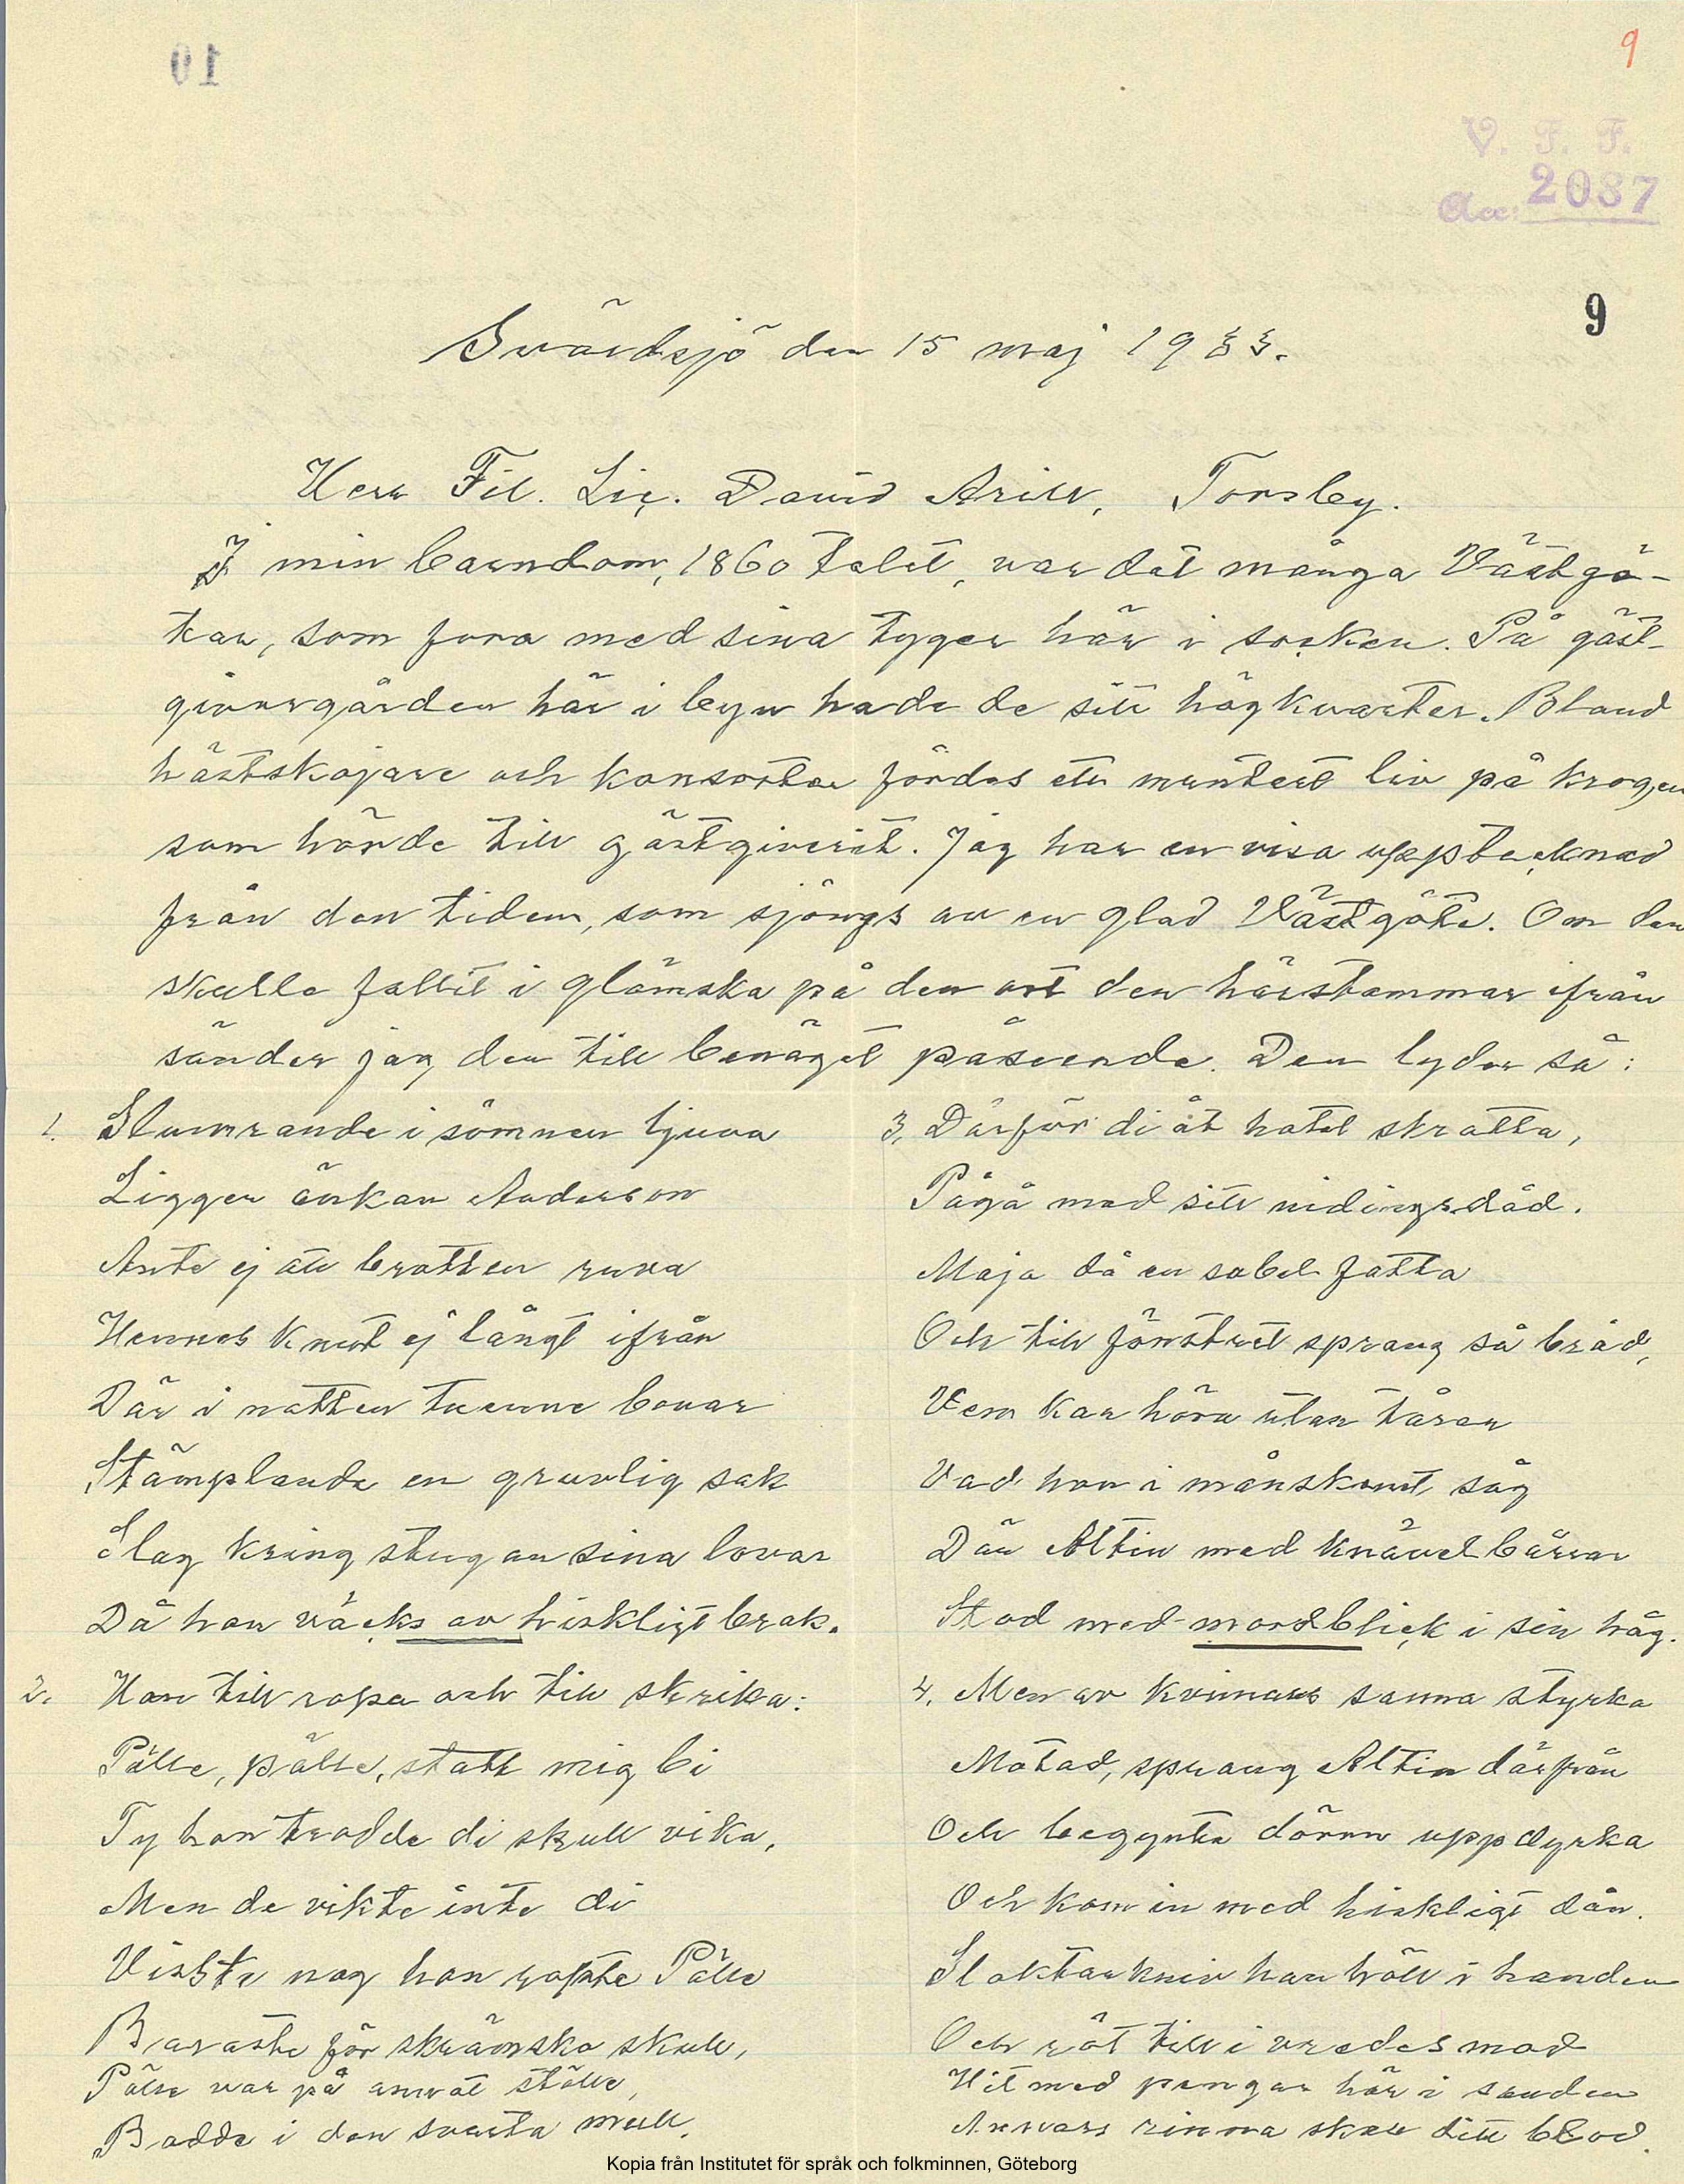 01
9
V. F. F.
Acc: 2087
9
Svärdsjö den 15 maj 1933.
Herr Fil. Lic. David Arill, Torsby.
I min barndom, 1860 talet, var det många Västgö-
tar, som foro med sina tyger här i socken. På gäst-
givaregården här i byn hade de sitt högkvarter. Bland
hästskojare och konsorter fördes ett muntert liv på krogen
som hörde till gästgiveriet. Jag har en visa upptecknad
från den tiden, som sjöngs av en glad Västgöte. Om den
skulle fallit i glömska på den ort den härstammar ifrån
sänder jag den till benäget påseende. Den lyder så:
1. Slumrande i sömnen ljuva
Ligger änkan Anderson
Ante ej att brotten ruva
Hennes knut ej långt ifrån
Där i natten tvenne bovar
Stämplande en gruvlig sak
Slag kring stugan sina lovar
Då hon väcks av hiskligt brak.
2. Hon till ropa och till skrika:
Pålle, pålle, statt mig bi
Ty hon trodde di skull vika,
Men de vikte inte di
Visste nog hon ropte Pålle
Baraste för skrämska skull,
Pålle var på annat ställe,
Bodde i den svarta mull.
3. Därför di åt hotet skratta,
Pågå med sitt nidingsdåd.
Maja då en sabel fatta
Och till fönstret sprang så bråd,
Vem kan höra utan tårar
Vad hon i månskenet såg
Där Altin med knävelbårrar
Stod med mordblick i sin håg.
4. Men av kvinnans sanna styrka
Motad, sprang Altin därfrån
Och begynte dörrn uppdyrka
Och kom in med hiskligt dån.
Slaktarkniv han höll i handen
Och röt till i vredesmod
Hit med pengar här i sanden
Annars rinna skall ditt blod.
Kopia från Institutet för språk och folkminnen, Göteborg